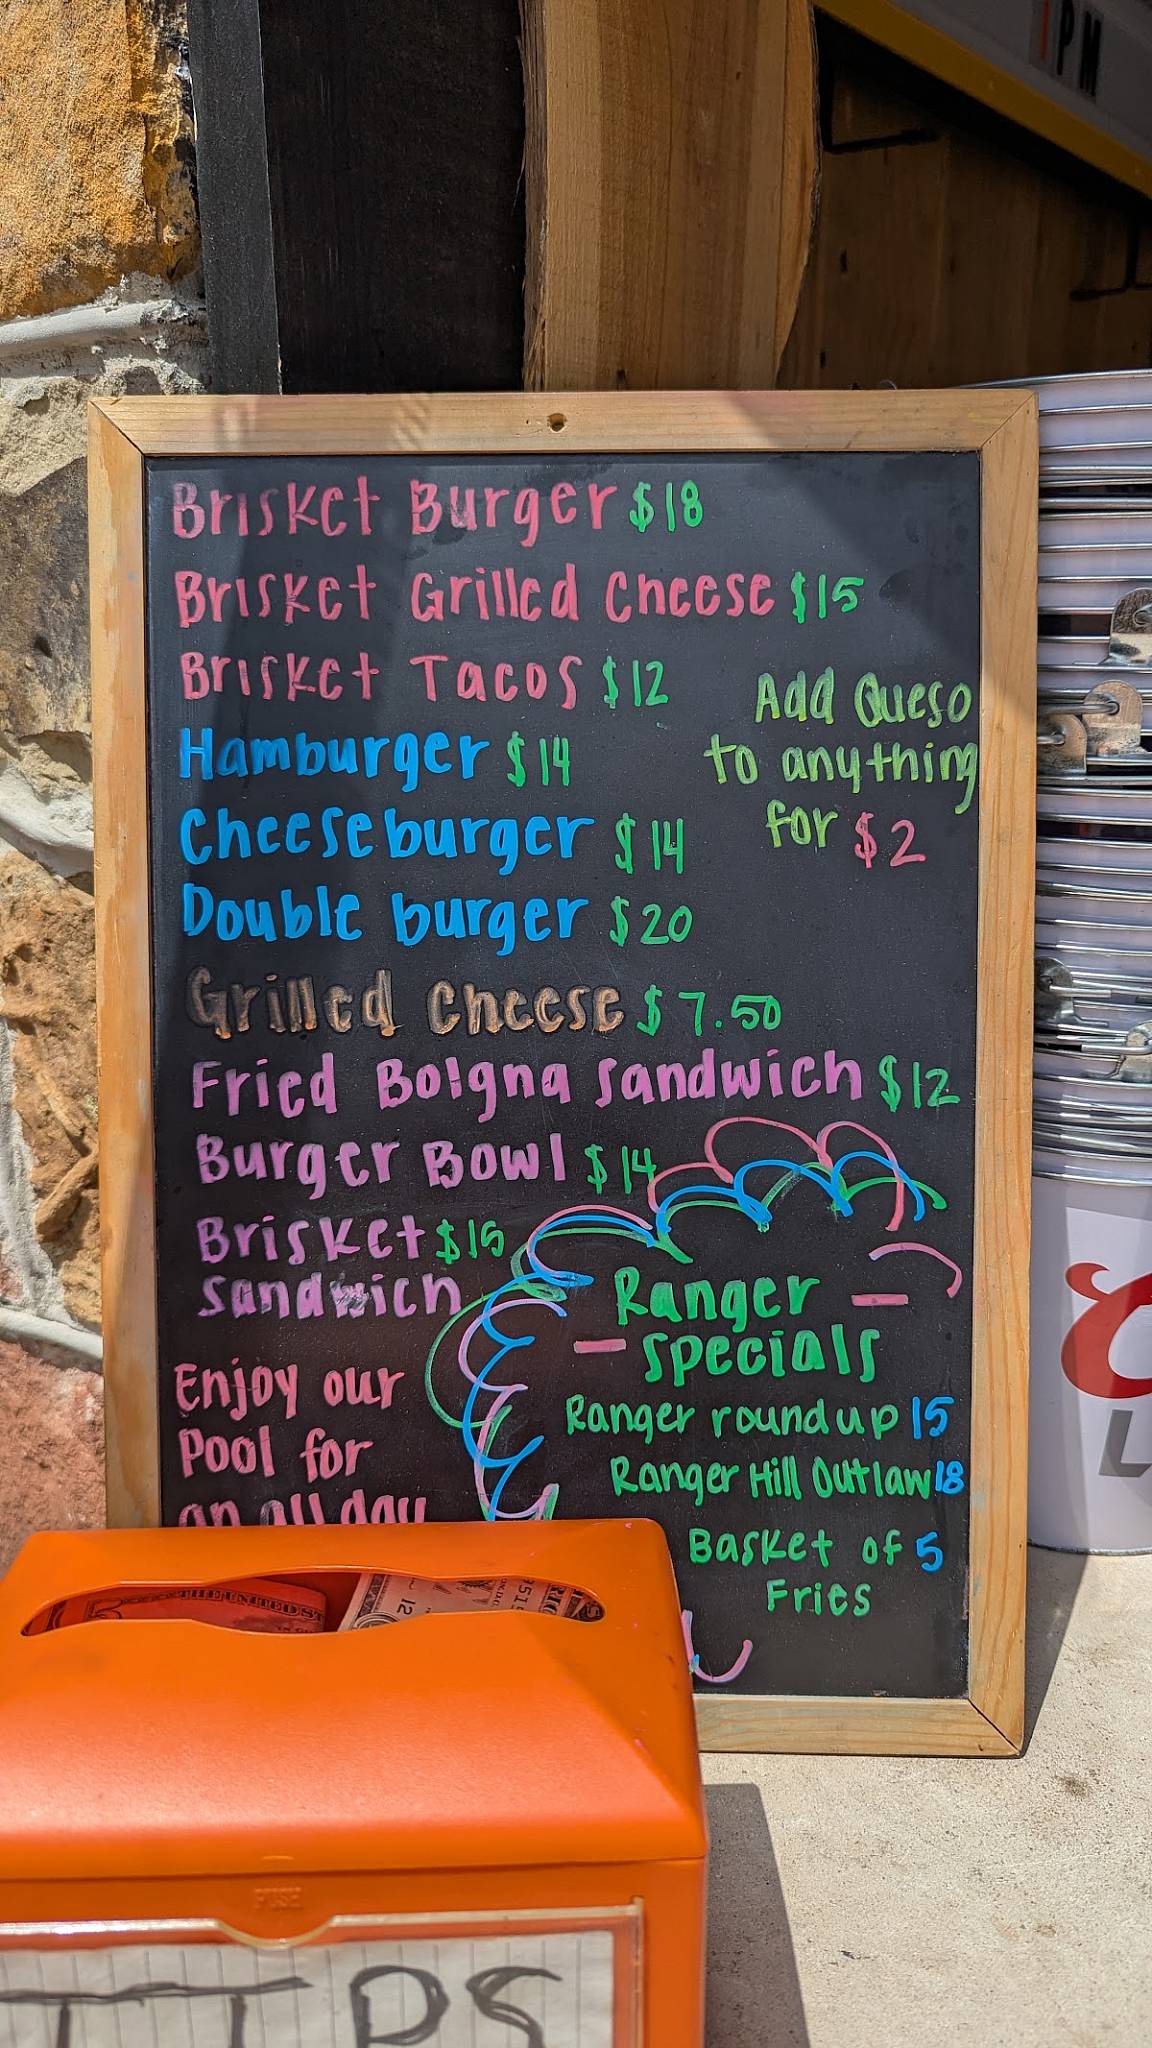 1PM
Brisket Burger $18
Brisket Grilled Cheese $15
Brisket Tacos $12
Add Queso
to anything
for $2
Hamburger $14
Cheeseburger $14
Double burger $20
Grilled Cheese $7.50
Fried Bolgna Sandwich $12
Burger Bowl $14
Brisket $15
Sandwich
Enjoy our
Pool for
an all day
Ranger -
- Specials
Ranger roundup 15
Ranger Hill Outlaw 18
Basket of 5
Fries
THE UNITED ST
5
PUSH
TIPS